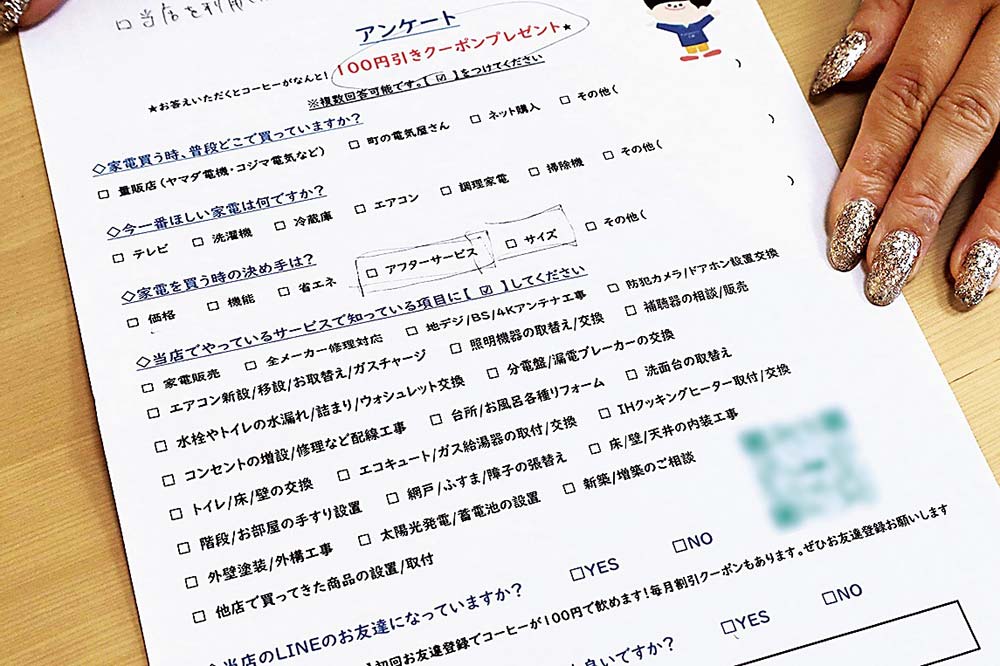 □当店を利用
アンケート
★お答えいただくとコーヒーがなんと!100円引きクーポンプレゼント★
※複数回答可能です。【☑】をつけてください
◇家電買う時、普段どこで買っていますか?
□ 量販店(ヤマダ電機・コジマ電気など) □ 町の電気屋さん □ ネット購入 □ その他( )
◇今一番ほしい家電は何ですか?
□ テレビ □ 洗濯機 □ 冷蔵庫 □ エアコン □ 調理家電 □ 掃除機 □ その他( )
◇家電を買う時の決め手は?
□ 価格 □ 機能 □ 省エネ □ アフターサービス □ サイズ □ その他( )
◇当店でやっているサービスで知っている項目に【☑】してください
□ 家電販売 □ 全メーカー修理対応 □ 地デジ/BS/4Kアンテナ工事 □ 防犯カメラ/ドアホン設置交換
□ エアコン新設/移設/お取替え/ガスチャージ □ 照明機器の取替え/交換 □ 補聴器の相談/販売
□ 水栓やトイレの水漏れ/詰まり/ウォシュレット交換 □ 分電盤/漏電ブレーカーの交換
□ コンセントの増設/修理など配線工事 □ 台所/お風呂各種リフォーム □ 洗面台の取替え
□ トイレ/床/壁の交換 □ エコキュート/ガス給湯器の取付/交換 □ IHクッキングヒーター取付/交換
□ 階段/お部屋の手すり設置 □ 網戸/ふすま/障子の張替え □ 床/壁/天井の内装工事
□ 外壁塗装/外構工事 □ 太陽光発電/蓄電池の設置 □ 新築/増築のご相談
□ 他店で買ってきた商品の設置/取付
◇当店のLINEのお友達になっていますか? □YES □NO
初回お友達登録でコーヒーが100円で飲めます!毎月割引クーポンもあります。ぜひお友達登録お願いします
良いですか? □YES □NO